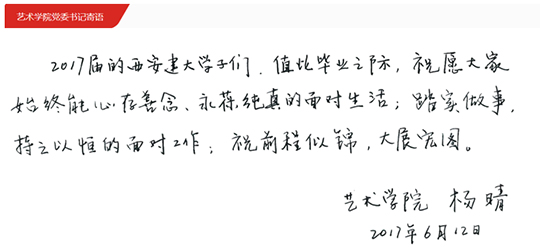 艺术学院党委书记寄语
2017届的西安建大学子们,值此毕业之际,祝愿大家
始终能心存善念、永葆纯真的面对生活;踏实做事,
持之以恒的面对工作;祝前程似锦,大展宏图。
艺术学院 杨晴
2017年6月12日